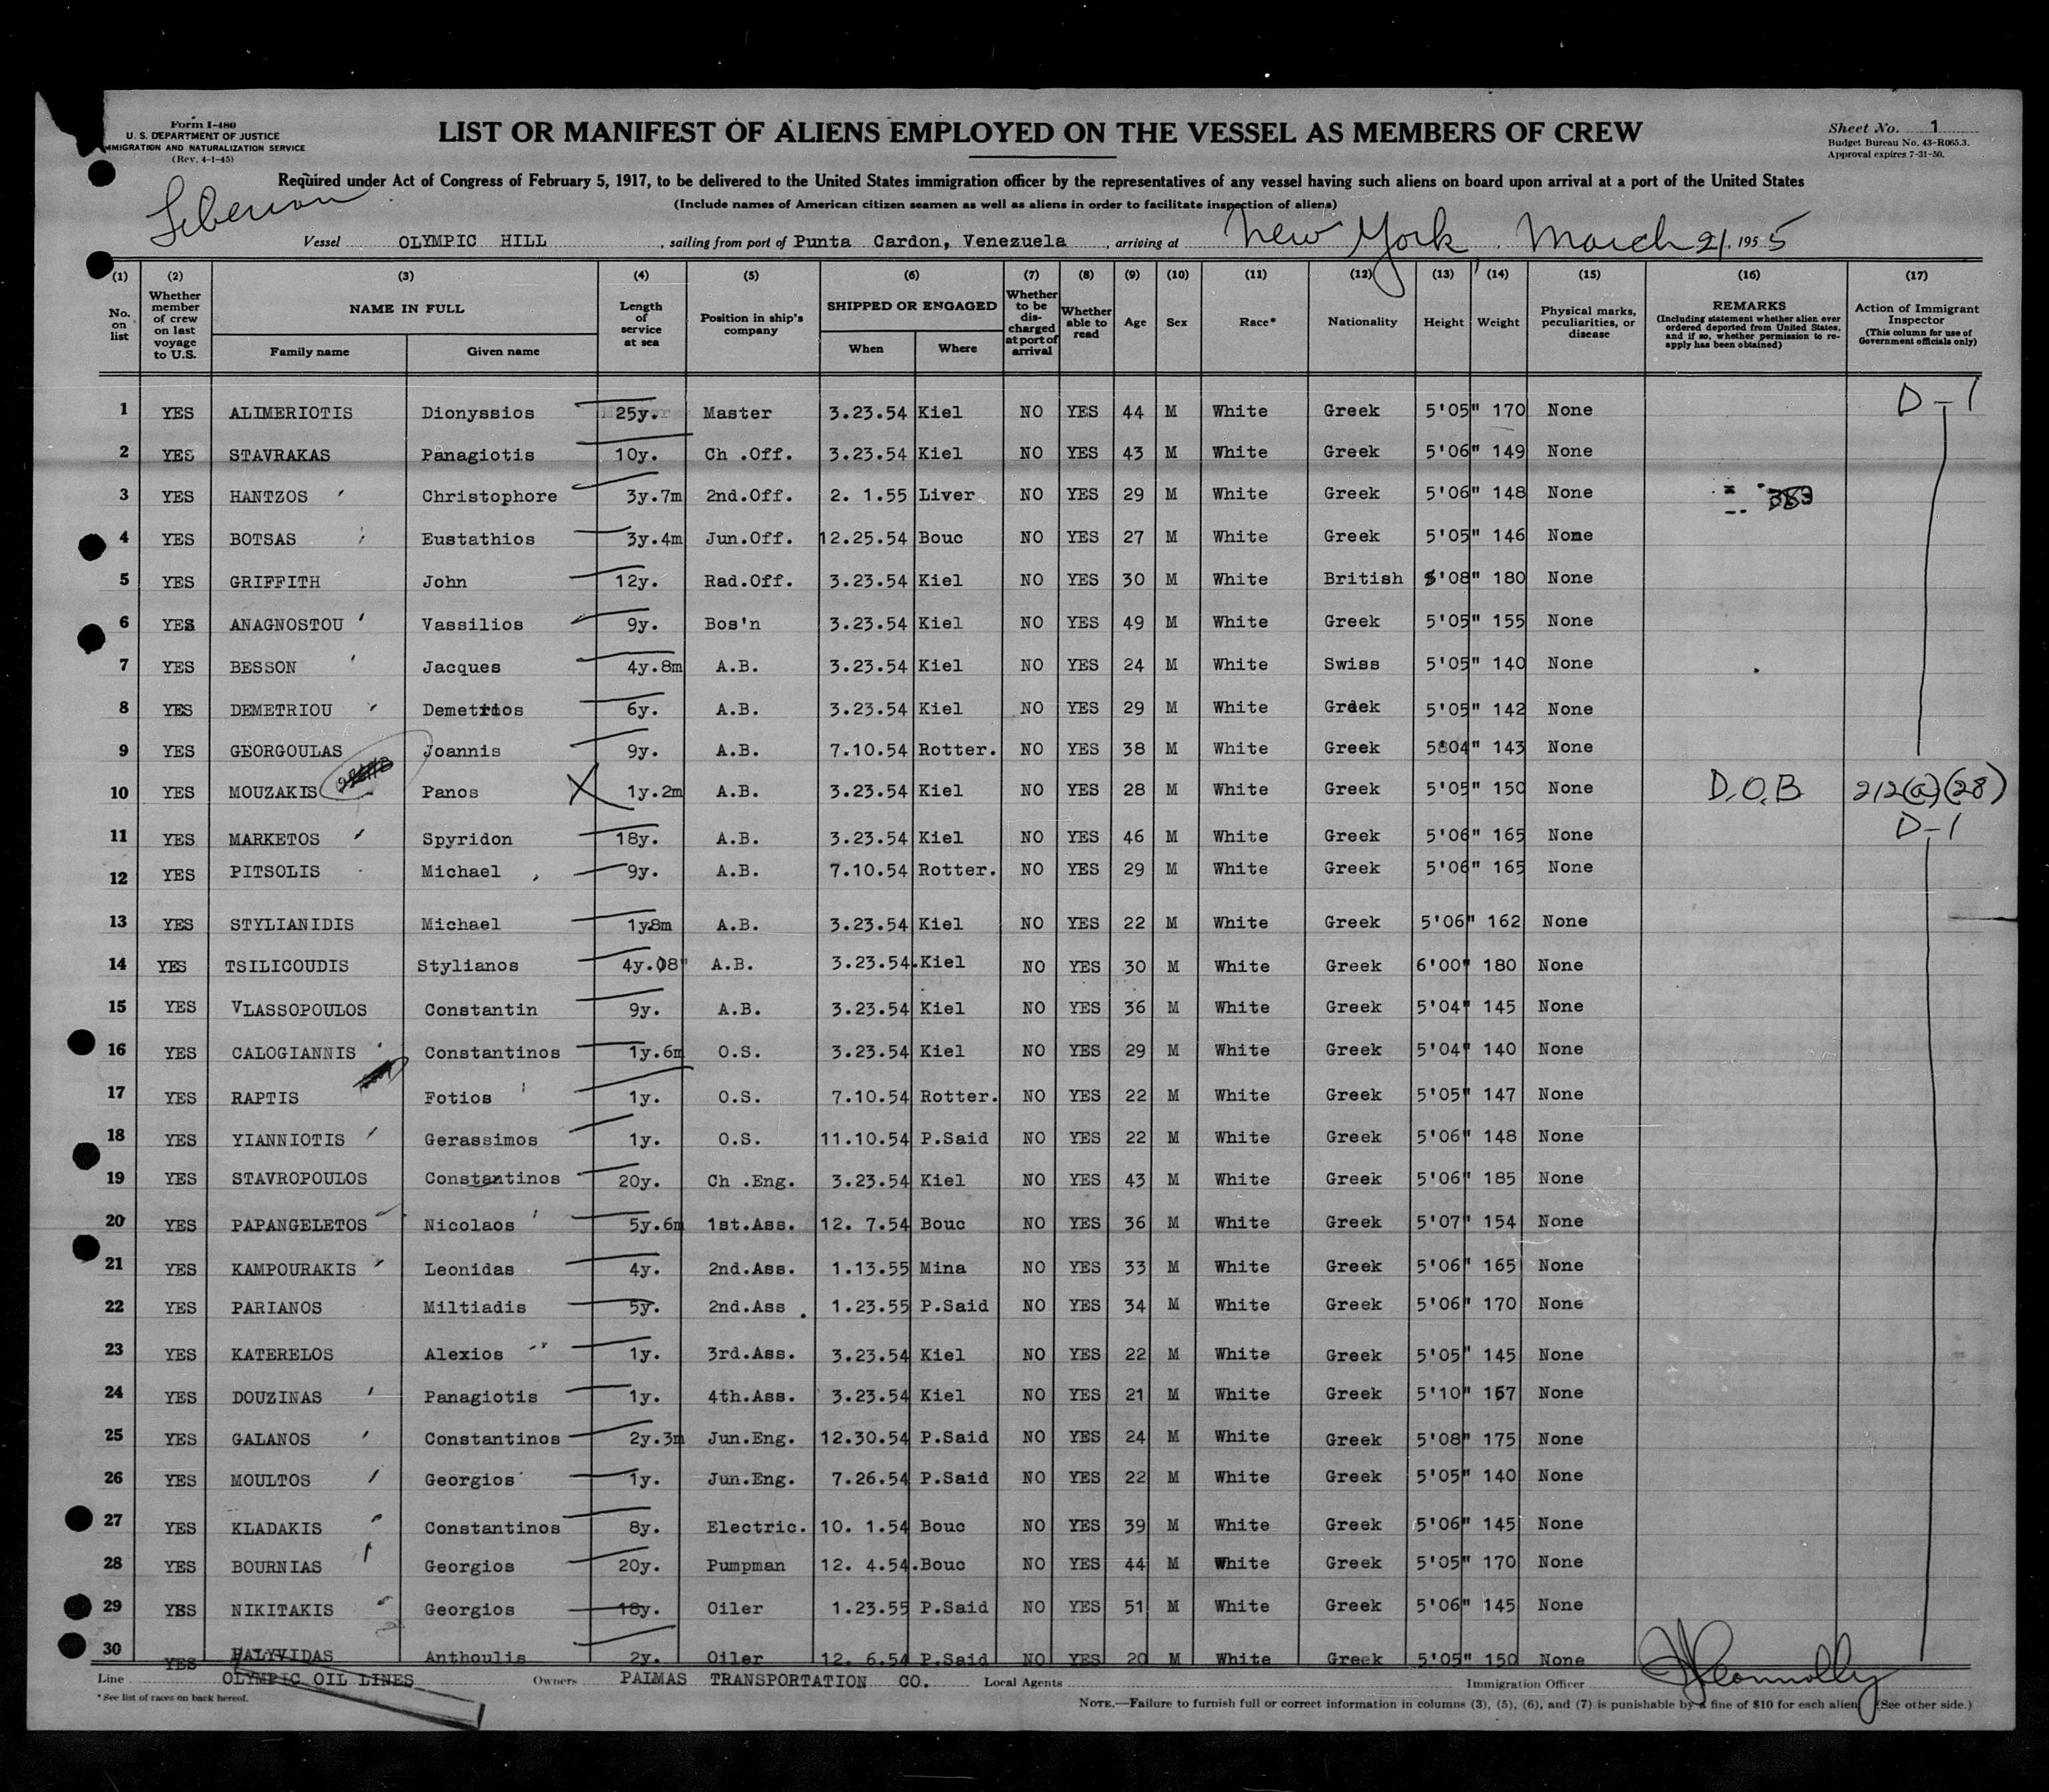 Form I-480
U. S. DEPARTMENT OF JUSTICE
IMMIGRATION AND NATURALIZATION SERVICE
(Rev. 4-1-45)
LIST OR MANIFEST OF ALIENS EMPLOYED ON THE VESSEL AS MEMBERS OF CREW
Sheet No. 1
Budget Bureau No. 43-R065.3.
Approval expires 7-31-50.
Required under Act of Congress of February 5, 1917, to be delivered to the United States immigration officer by the representatives of any vessel having such aliens on board upon arrival at a port of the United States
(Include names of American citizen seamen as well as aliens in order to facilitate inspection of aliens)
Liberian
Vessel OLYMPIC HILL, sailing from port of Punta Cardon, Venezuela, arriving at New York, March 21, 1955
(1) (2) (3) (4) (5) (6) (7) (8) (9) (10) (11) (12) (13) (14) (15) (16) (17)
No. on list
Whether member of crew on last voyage to U.S.
NAME IN FULL
Family name
Given name
Length of service at sea
Position in ship's company
SHIPPED OR ENGAGED
When
Where
Whether to be discharged at port of arrival
Whether able to read
Age
Sex
Race*
Nationality
Height
Weight
Physical marks, peculiarities, or disease
REMARKS
(Including statement whether alien ever ordered deported from United States, and if so, whether permission to re-apply has been obtained)
Action of Immigrant Inspector
(This column for use of Government officials only)
1 YES ALIMERIOTIS Dionyssios 25y. Master 3.23.54 Kiel NO YES 44 M White Greek 5'05" 170 None D-1
2 YES STAVRAKAS Panagiotis 10y. Ch .Off. 3.23.54 Kiel NO YES 43 M White Greek 5'06" 149 None
3 YES HANTZOS Christophore 3y.7m 2nd.Off. 2. 1.55 Liver. NO YES 29 M White Greek 5'06" 148 None 383
4 YES BOTSAS Eustathios 3y.4m Jun.Off. 12.25.54 Bouc NO YES 27 M White Greek 5'05" 146 None
5 YES GRIFFITH John 12y. Rad.Off. 3.23.54 Kiel NO YES 30 M White British 5'08" 180 None
6 YES ANAGNOSTOU Vassilios 9y. Bos'n 3.23.54 Kiel NO YES 49 M White Greek 5'05" 155 None
7 YES BESSON Jacques 4y.8m A.B. 3.23.54 Kiel NO YES 24 M White Swiss 5'05" 140 None
8 YES DEMETRIOU Demetrios 6y. A.B. 3.23.54 Kiel NO YES 29 M White Greek 5'05" 142 None
9 YES GEORGOULAS Joannis 9y. A.B. 7.10.54 Rotter. NO YES 38 M White Greek 5804" 143 None
10 YES MOUZAKIS Panos X 1y.2m A.B. 3.23.54 Kiel NO YES 28 M White Greek 5'05" 150 None D.O.B. 212(a)(28)
11 YES MARKETOS Spyridon 18y. A.B. 3.23.54 Kiel NO YES 46 M White Greek 5'06" 165 None D-1
12 YES PITSOLIS Michael 9y. A.B. 7.10.54 Rotter. NO YES 29 M White Greek 5'06" 165 None
13 YES STYLIANIDIS Michael 1y8m A.B. 3.23.54 Kiel NO YES 22 M White Greek 5'06" 162 None
14 YES TSILICOUDIS Stylianos 4y.08" A.B. 3.23.54. Kiel NO YES 30 M White Greek 6'00" 180 None
15 YES VLASSOPOULOS Constantin 9y. A.B. 3.23.54 Kiel NO YES 36 M White Greek 5'04" 145 None
16 YES CALOGIANNIS Constantinos 1y.6m O.S. 3.23.54 Kiel NO YES 29 M White Greek 5'04" 140 None
17 YES RAPTIS Fotios 1y. O.S. 7.10.54 Rotter. NO YES 22 M White Greek 5'05" 147 None
18 YES YIANNIOTIS Gerassimos 1y. O.S. 11.10.54 P.Said NO YES 22 M White Greek 5'06" 148 None
19 YES STAVROPOULOS Constantinos 20y. Ch .Eng. 3.23.54 Kiel NO YES 43 M White Greek 5'06" 185 None
20 YES PAPANGELETOS Nicolaos 5y.6m 1st.Ass. 12. 7.54 Bouc NO YES 36 M White Greek 5'07" 154 None
21 YES KAMPOURAKIS Leonidas 4y. 2nd.Ass. 1.13.55 Mina NO YES 33 M White Greek 5'06" 165 None
22 YES PARIANOS Miltiadis 5y. 2nd.Ass . 1.23.55 P.Said NO YES 34 M White Greek 5'06" 170 None
23 YES KATERELOS Alexios 1y. 3rd.Ass. 3.23.54 Kiel NO YES 22 M White Greek 5'05" 145 None
24 YES DOUZINAS Panagiotis 1y. 4th.Ass. 3.23.54 Kiel NO YES 21 M White Greek 5'10" 167 None
25 YES GALANOS Constantinos 2y.3m Jun.Eng. 12.30.54 P.Said NO YES 24 M White Greek 5'08" 175 None
26 YES MOULTOS Georgios 1y. Jun.Eng. 7.26.54 P.Said NO YES 22 M White Greek 5'05" 140 None
27 YES KLADAKIS Constantinos 8y. Electric. 10. 1.54 Bouc NO YES 39 M White Greek 5'06" 145 None
28 YES BOURNIAS Georgios 20y. Pumpman 12. 4.54. Bouc NO YES 44 M White Greek 5'05" 170 None
29 YES NIKITAKIS Georgios 18y. Oiler 1.23.55 P.Said NO YES 51 M White Greek 5'06" 145 None
30 YES PALYVIDAS Anthoulis 2y. Oiler 12. 6.54 P.Said NO YES 20 M White Greek 5'05" 150 None
Line OLYMPIC OIL LINES Owners PALMAS TRANSPORTATION CO. Local Agents Immigration Officer Connolly
*See list of races on back hereof.
NOTE.—Failure to furnish full or correct information in columns (3), (5), (6), and (7) is punishable by a fine of $10 for each alien. (See other side.)